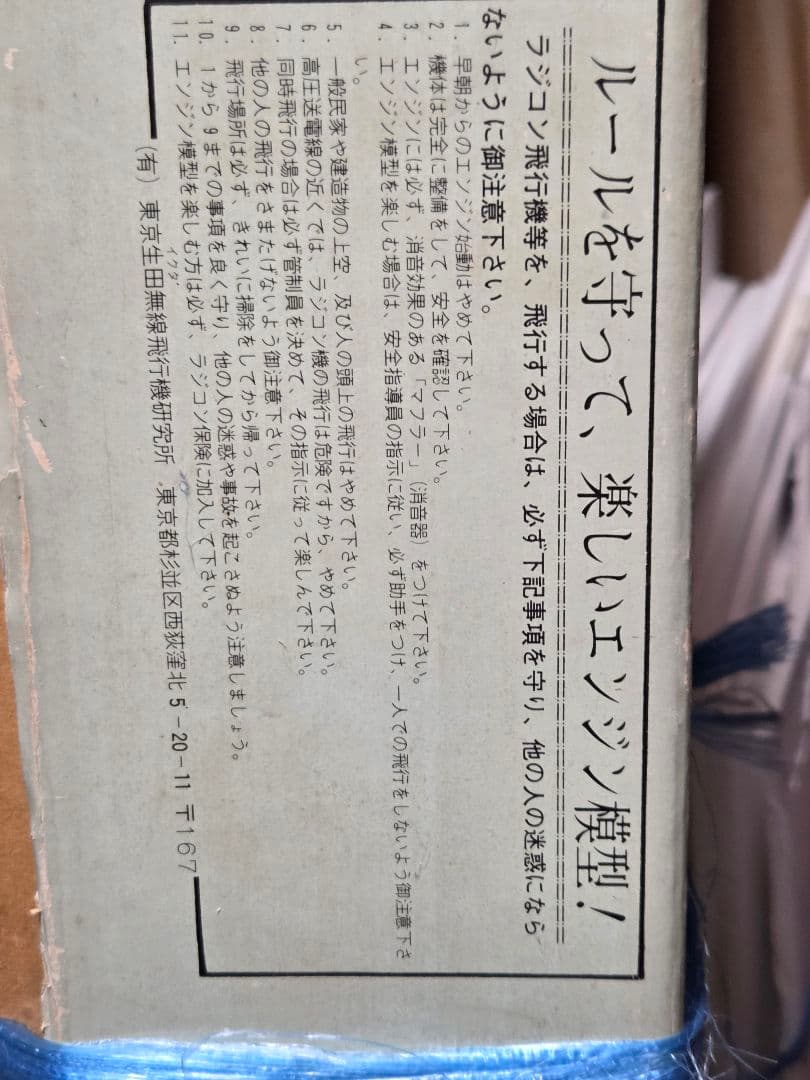 ルールを守って、楽しいエンジン模型!
ラジコン飛行機等を、飛行する場合は、必ず下記事項を守り、他の人の迷惑になら
ないように御注意下さい。
1. 早朝からのエンジン始動はやめて下さい。
2. 機体は完全に整備をして、安全を確認して下さい。
3. エンジンには必ず、消音効果のある「マフラー」(消音器)をつけて下さい。
4. エンジン模型を楽しむ場合は、安全指導員の指示に従い、必ず助手をつけ、一人での飛行をしないよう御注意下さ
い。
5. 一般民家や建造物の上空、及び人の頭上の飛行はやめて下さい。
6. 高圧送電線の近くでは、ラジコン機の飛行は危険ですから、やめて下さい。
7. 同時飛行の場合は必ず管制員を決めて、その指示に従って楽しんで下さい。
8. 他の人の飛行をさまたげないよう御注意下さい。
9. 飛行場所は必ず、きれいに掃除をしてから帰って下さい。
10. 1から9までの事項を良く守り、他の人の迷惑や事故を起こさぬよう注意しましょう。
11. エンジン模型を楽しむ方は必ず、ラジコン保険に加入して下さい。
イクタ
(有) 東京生田無線飛行機研究所 東京都杉並区西荻窪北5-20-11 〒167